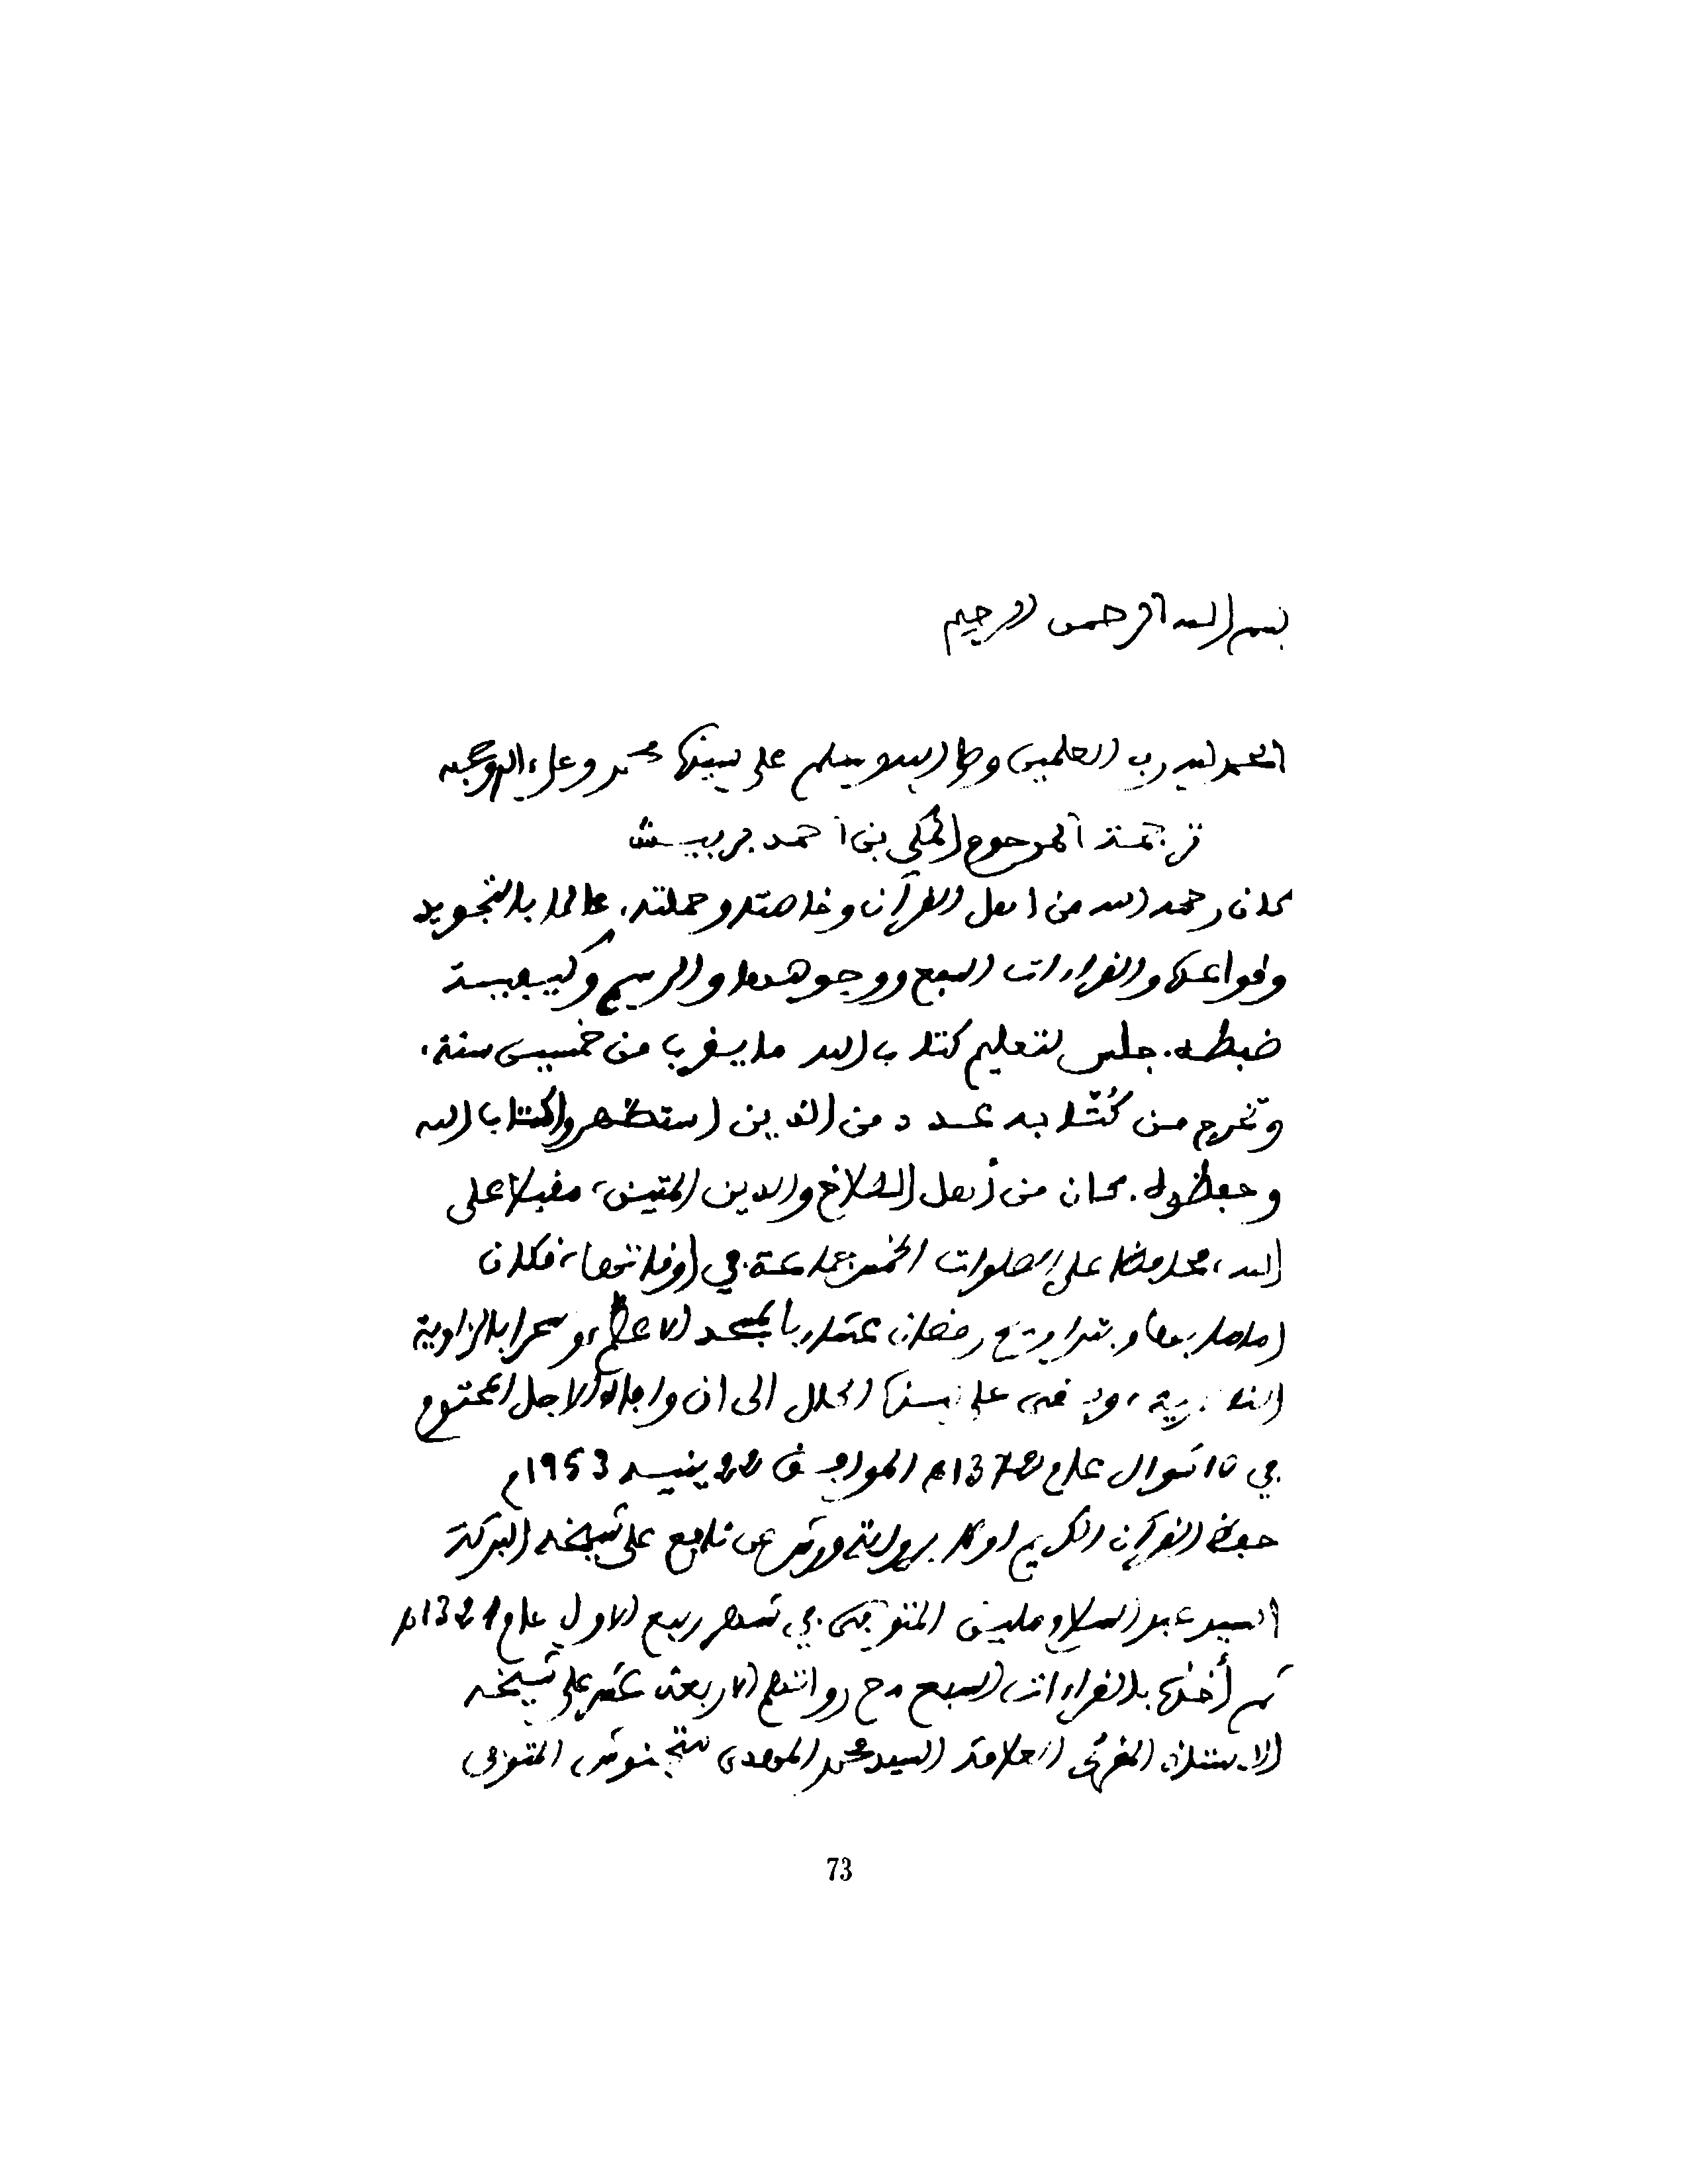 بسم الله الرحمن الرحيم
الحمد لله رب العلمين وصلى الله وسلم على نبينا محمد وعلى ءاله وصحبه
ترجمة المرحوم المكي بن أحمد بربيش
كان رحمه الله من اهل القرآن وخاصته وحملته، عالما بالتجويد
وقواعده والقراءات السبع ووجوهها والرسم وكيفية
ضبطه. جلس لتعليم كتاب الله ما يقرب من خمسين سنة،
وتخرج من كُتّابه عدد من الذين استظهروا كتاب الله
وحفظوه. كان من أهل الصلاح والدين المتين، مقبلا على
الله، محافظا على الصلوات الخمس جماعة في اوقاتها، فكان
اماما بها وبتراويح رمضان عشاء بالمسجد الاعظم، وسحرا بالزاوية
الناصرية، وبقي على هذا الحال الى ان وافاه الاجل المحتوم
في 10 شوال عام 1372ه الموافق 22 ينيه 1953م
حفظ القرآن الكريم اولا برواية ورش عن نافع على شيخه البركة
السيد عبد السلام ملين المتوفى في شهر ربيع الاول عام 1321ه
ثم أخذه بالقراءات السبع مع رواتهم الاربعة عشر على شيخه
الاستاذ المقرئ العلامة السيد محمد المهدي متجنوش المتوفى
73